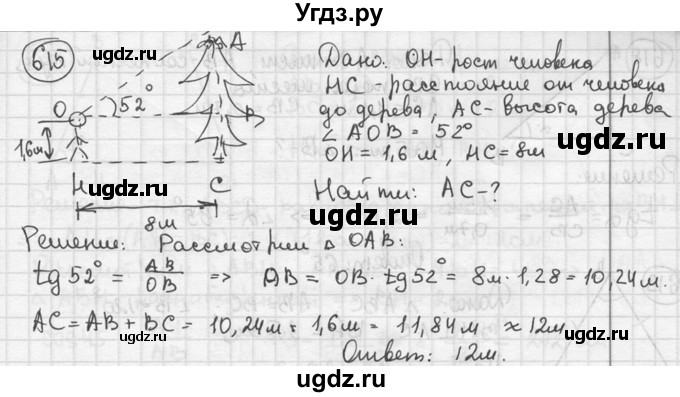 Угдз.ру
615
A
Дано: OH - рост человека
HC - расстояние от человека
до дерева, AC - высота дерева
∠ AOB = 52°
OH = 1,6 м, HC = 8м
Найти: AC - ?
O 52° B
1,6м
H C
8м
Решение: Рассмотрим Δ OAB:
tg 52° = AB/OB => AB = OB · tg 52° = 8м · 1,28 = 10,24 м.
AC = AB + BC = 10,24м + 1,6м = 11,84м ≈ 12м
Ответ: 12м.
ugdz.ru
ugdz.ru
ugdz.ru
ugdz.ru
ugdz.ru
ugdz.ru
ugdz.ru
ugdz.ru
ugdz.ru
ugdz.ru
ugdz.ru